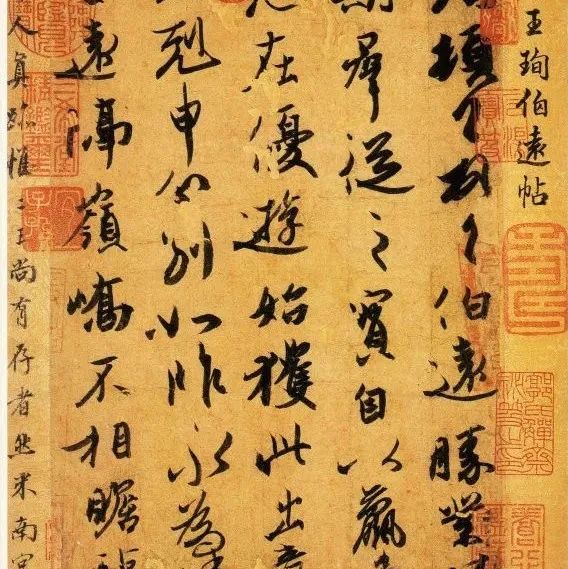 王珣伯遠帖
頓首頓首伯遠勝業
羣從之寶自以羸
在優遊始獲此出意
剋申分別如昨永為
遠隔嶺嶠不相瞻臨
人真跡惟二王尚有存者然米南宮